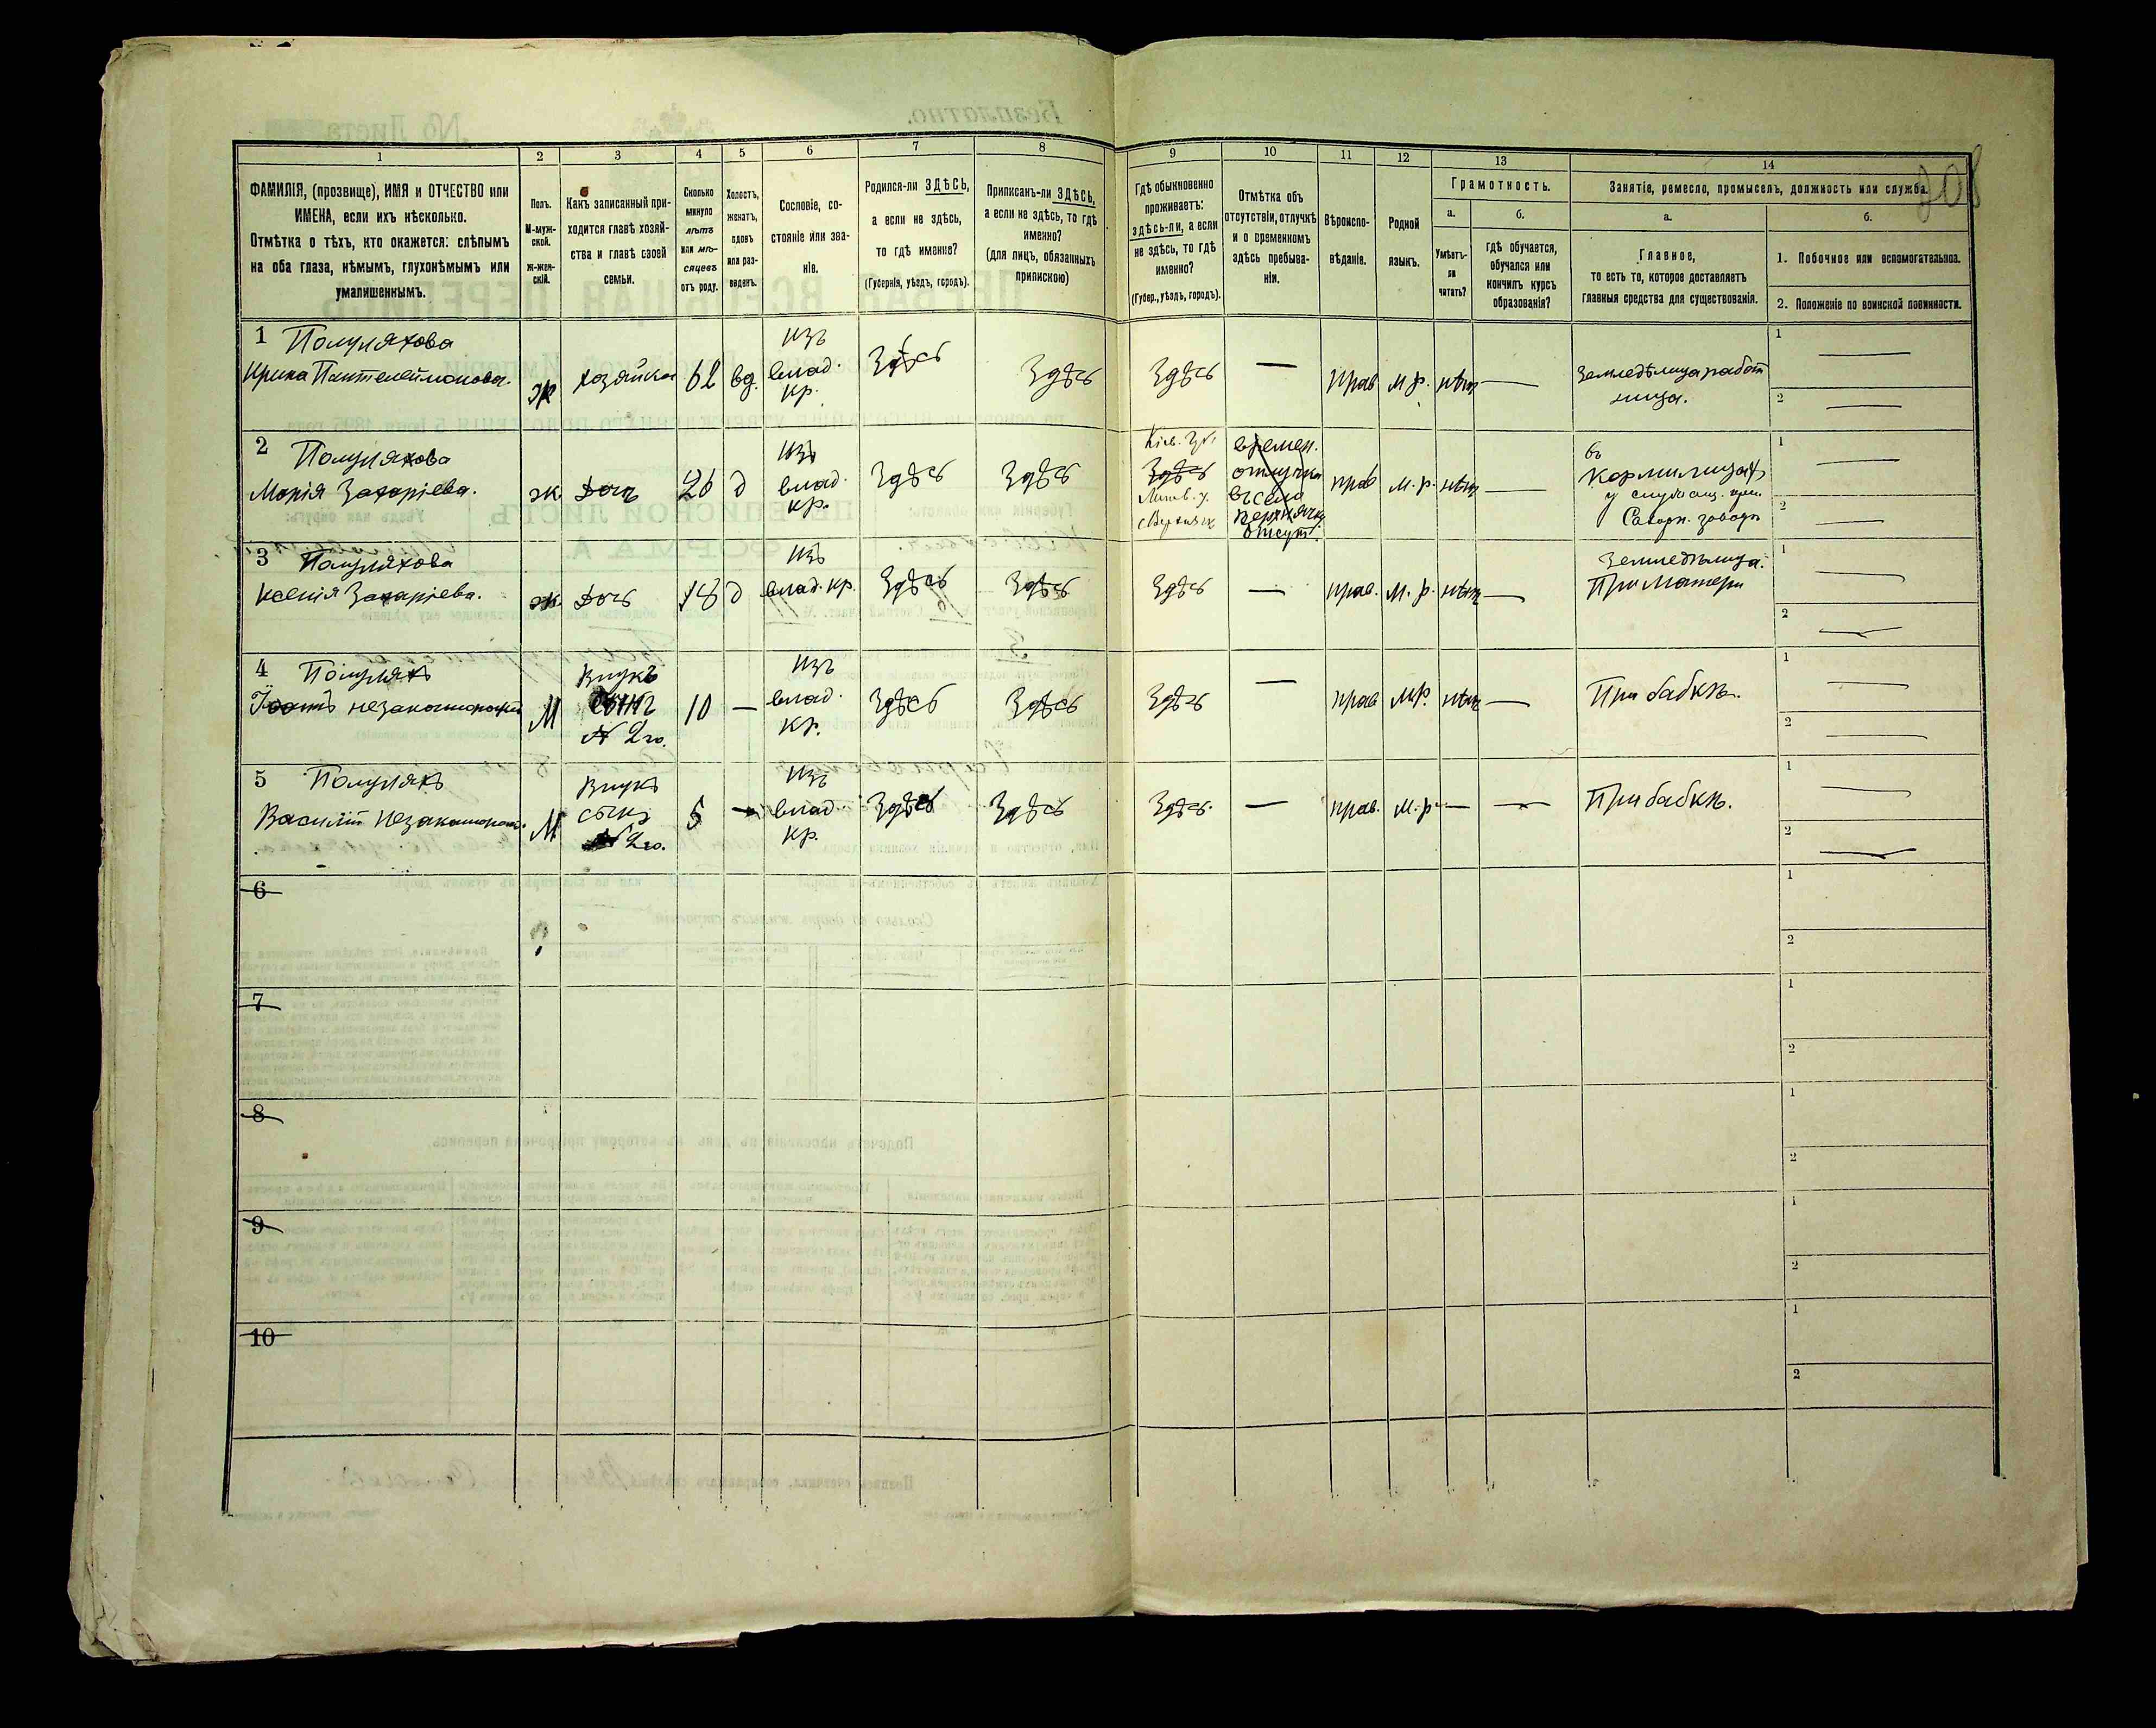 208
1 2 3 4 5 6 7 8 9 10 11 12 13 14
ФАМИЛІЯ, (прозвище), ИМЯ и ОТЧЕСТВО или
ИМЕНА, если ихъ нѣсколько.
Отмѣтка о тѣхъ, кто окажется: слѣпымъ
на оба глаза, нѣмымъ, глухонѣмымъ или
умалишеннымъ.
Полъ.
М-муж-
ской.
Ж-жен-
скій.
Какъ записанный при-
ходится главѣ хозяй-
ства и главѣ своей
семьи.
Сколько
минуло
лѣтъ
или мѣ-
сяцевъ
отъ роду.
Холостъ,
женатъ,
вдовъ
или раз-
веденъ.
Сословіе, со-
стояніе или зва-
ніе.
Родился-ли ЗДѢСЬ,
а если не здѣсь,
то гдѣ именно?
(Губернія, уѣздъ, городъ).
Приписанъ-ли ЗДѢСЬ,
а если не здѣсь, то гдѣ
именно?
(для лицъ, обязанныхъ
припискою)
Гдѣ обыкновенно
проживаетъ:
здѣсь-ли, а если
не здѣсь, то гдѣ
именно?
(Губер., уѣздъ, городъ).
Отмѣтка объ
отсутствіи, отлучкѣ
и о временномъ
здѣсь пребыва-
ніи.
Вѣроиспо-
вѣданіе.
Родной
языкъ.
Грамотность.
а.
Умѣетъ-
ли
читать?
б.
гдѣ обучается,
обучался или
кончилъ курсъ
образованія?
Занятіе, ремесло, промыселъ, должность или служба.
а.
Главное,
то есть то, которое доставляетъ
главныя средства для существованія.
б.
1. Побочное или вспомогательное.
2. Положеніе по воинской повинности.
1 Полуляхова
Ирина Пантелеймонова.
ж
хозяйка
62
вд.
изъ
влад.
кр.
Здѣсь
Здѣсь
Здѣсь
—
прав
м.р.
нѣтъ
—
Земледѣлица работ
ница.
1 —
2 —
2 Полуляхова
Марія Захаріева.
ж
Дочь
26
д
изъ
влад.
кр.
Здѣсь
Здѣсь
Кіев. губ.
Здѣсь
с. Верхнячк
времен.
отлучка
въ село
Верхнячку
отсут.
прав
м.р.
нѣтъ
—
въ
Кормилицах
у служащ. при
Сахарн. заводѣ
1 —
2 —
3 Полуляхова
Ксенія Захаріева.
ж
Дочь
18
д
изъ
влад. кр.
Здѣсь
Здѣсь
Здѣсь
—
прав.
м.р.
нѣтъ
—
Земледѣлица.
При Матери
1 —
2 —
4 Полуляхъ
незаконорожд
М
Внукъ
сынъ
№ 2го.
10
—
изъ
влад.
кр.
Здѣсь
Здѣсь
Здѣсь
—
прав
м.р.
нѣтъ
—
При бабкѣ.
1 —
2 —
5 Полуляхъ
Василій незаконорож.
М
Внукъ
сынъ
№ 2го.
5
—
изъ
влад.
кр.
Здѣсь
Здѣсь
Здѣсь.
—
прав.
м.р.
—
—
При бабкѣ.
1 —
2 —
6
1
2
7
1
2
8
1
2
9
1
2
10
1
2